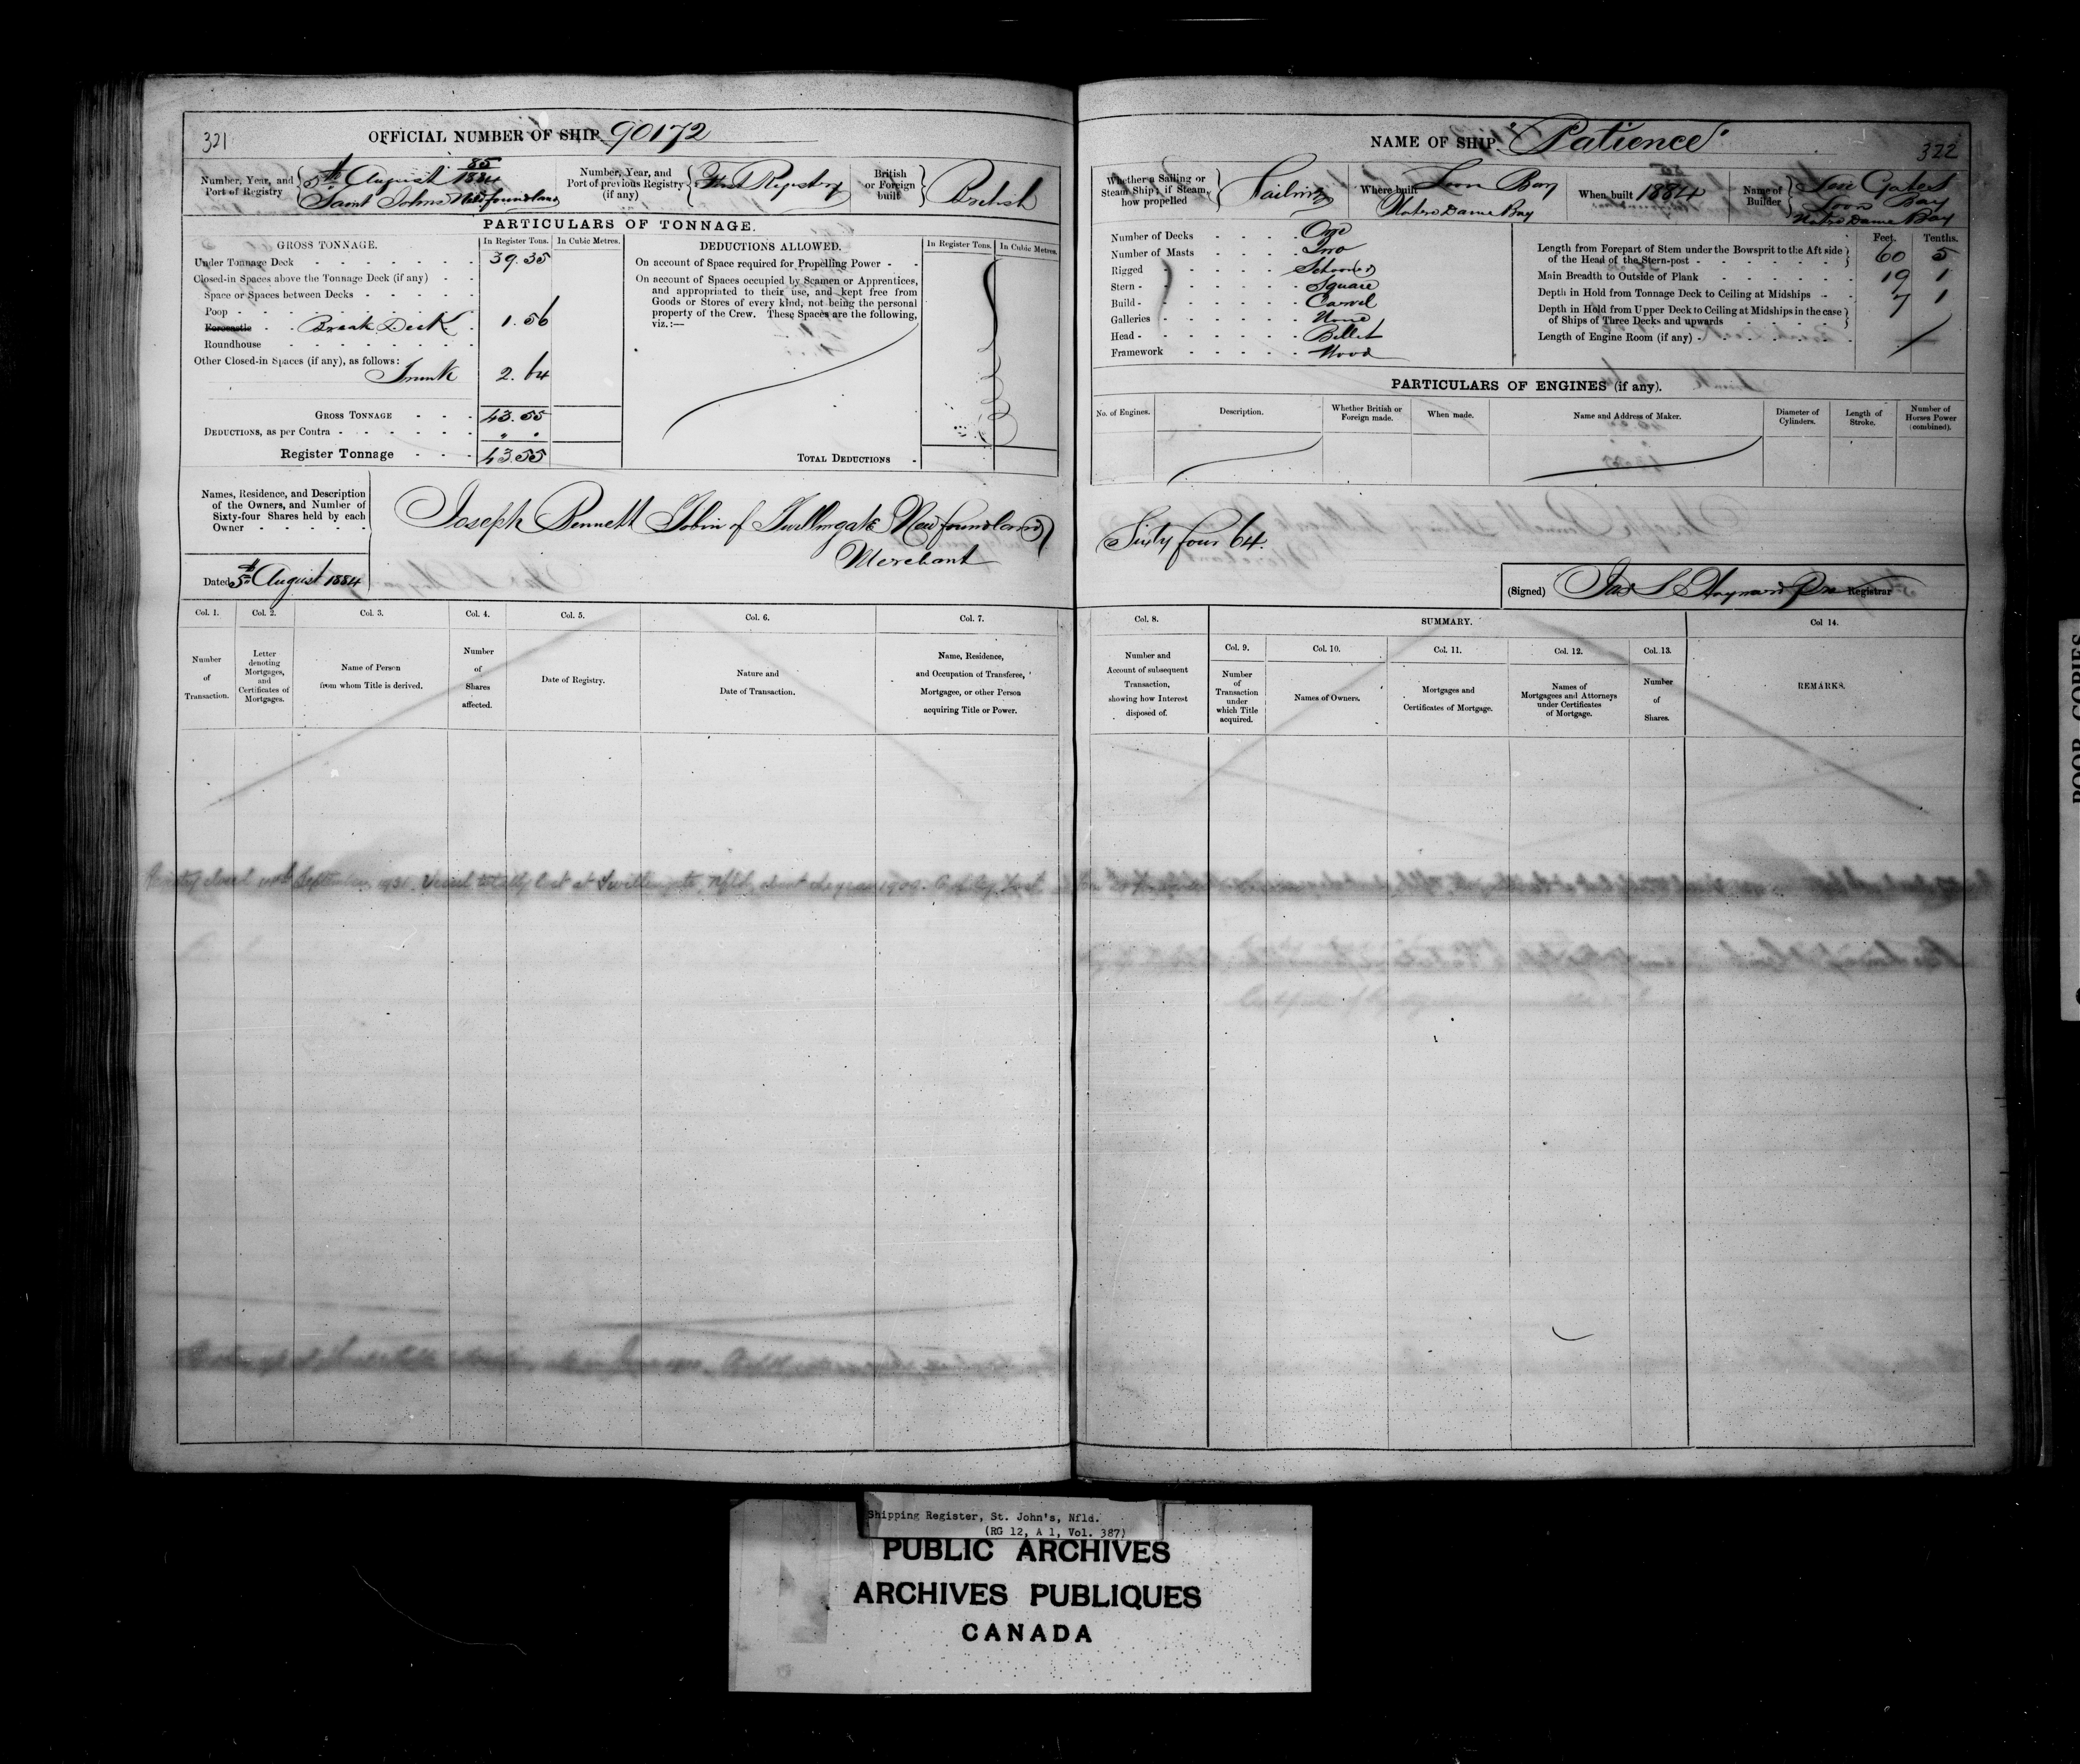 321
OFFICIAL NUMBER OF SHIP 90172
Number, Year, and Port of Registry
85/1884
5th August
Saint Johns Newfoundland
Number, Year, and Port of previous Registry (if any)
First Registry
British or Foreign built
British
PARTICULARS OF TONNAGE.
GROSS TONNAGE.
In Register Tons.
In Cubic Metres.
Under Tonnage Deck 39.35
Closed-in Spaces above the Tonnage Deck (if any)
Space or Spaces between Decks
Poop
Forecastle Break Deck 1.56
Roundhouse
Other Closed-in Spaces (if any), as follows:
Trunk 2.64
GROSS TONNAGE 43.55
DEDUCTIONS, as per Contra " .
Register Tonnage 43.55
DEDUCTIONS ALLOWED.
In Register Tons.
In Cubic Metres.
On account of Space required for Propelling Power
On account of Spaces occupied by Seamen or Apprentices,
and appropriated to their use, and kept free from
Goods or Stores of every kind, not being the personal
property of the Crew. These Spaces are the following,
viz.:—
TOTAL DEDUCTIONS
Names, Residence, and Description
of the Owners, and Number of
Sixty-four Shares held by each
Owner
Joseph Bennett Tobin of Twillingate Newfoundland
Merchant
Dated 5th August 1884
Col. 1.
Number
of
Transaction.
Col. 2.
Letter
denoting
Mortgages,
and
Certificates of
Mortgages.
Col. 3.
Name of Person
from whom Title is derived.
Col. 4.
Number
of
Shares
affected.
Col. 5.
Date of Registry.
Col. 6.
Nature and
Date of Transaction.
Col. 7.
Name, Residence,
and Occupation of Transferee,
Mortgagee, or other Person
acquiring Title or Power.
September 1931. Vessel totally lost at Twillingate, Nfld, about the year 1909.
NAME OF SHIP "Patience"
322
Whether a Sailing or
Steam Ship; if Steam,
how propelled
Sailing
Where built
Loon Bay
Notre Dame Bay
When built 1884
Name of
Builder
Gates
Loon Bay
Notre Dame Bay
Number of Decks One
Number of Masts Two
Rigged Schooner
Stern Square
Build Carvel
Galleries None
Head Billet
Framework Wood
Feet. Tenths.
Length from Forepart of Stem under the Bowsprit to the Aft side
of the Head of the Stern-post 60 5
Main Breadth to Outside of Plank 19 1
Depth in Hold from Tonnage Deck to Ceiling at Midships 7 1
Depth in Hold from Upper Deck to Ceiling at Midships in the case
of Ships of Three Decks and upwards
Length of Engine Room (if any)
PARTICULARS OF ENGINES (if any).
No. of Engines.
Description.
Whether British or
Foreign made.
When made.
Name and Address of Maker.
Diameter of
Cylinders.
Length of
Stroke.
Number of
Horses Power
(combined).
Sixty four 64.
(Signed) Registrar
Col. 8.
Number and
Account of subsequent
Transaction,
showing how Interest
disposed of.
SUMMARY.
Col. 9.
Number
of
Transaction
under
which Title
acquired.
Col. 10.
Names of Owners.
Col. 11.
Mortgages and
Certificates of Mortgage.
Col. 12.
Names of
Mortgagees and Attorneys
under Certificates
of Mortgage.
Col. 13.
Number
of
Shares.
Col 14.
REMARKS.
POOR COPIES
Shipping Register, St. John's, Nfld.
(RG 12, A 1, Vol. 387)
PUBLIC ARCHIVES
ARCHIVES PUBLIQUES
CANADA